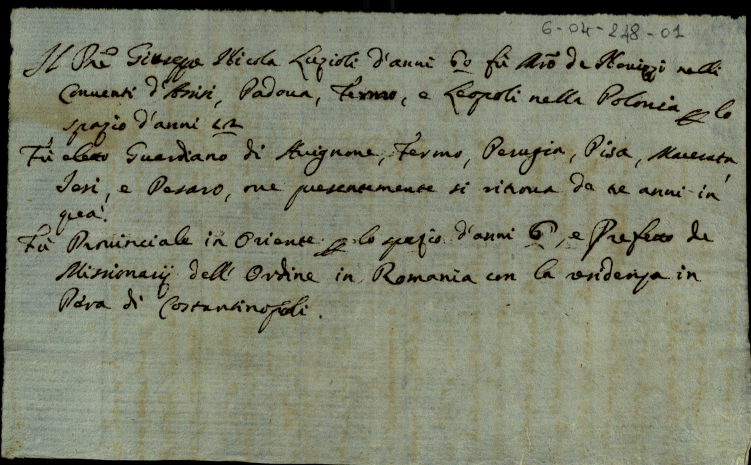 6-04-248-01
Il Pre Giuseppe Nicola Luzioli d'anni 60 fù Mro de Novizzi nelli
Conventi d'Assisi, Padova, Fermo, e Leopoli nella Polonia p lo
spazio d'anni 12
Fù eletto Guardiano di Avignone, Fermo, Perugia, Pisa, Macerata,
Jesi, e Pesaro, ove presentemente si ritrova da tre anni in
quà.
Fù Provinciale in Oriente p lo spazio d'anni 6, e Prefetto de
Missionarij dell'Ordine in Romania con la residenza in
Pera di Costantinopoli.